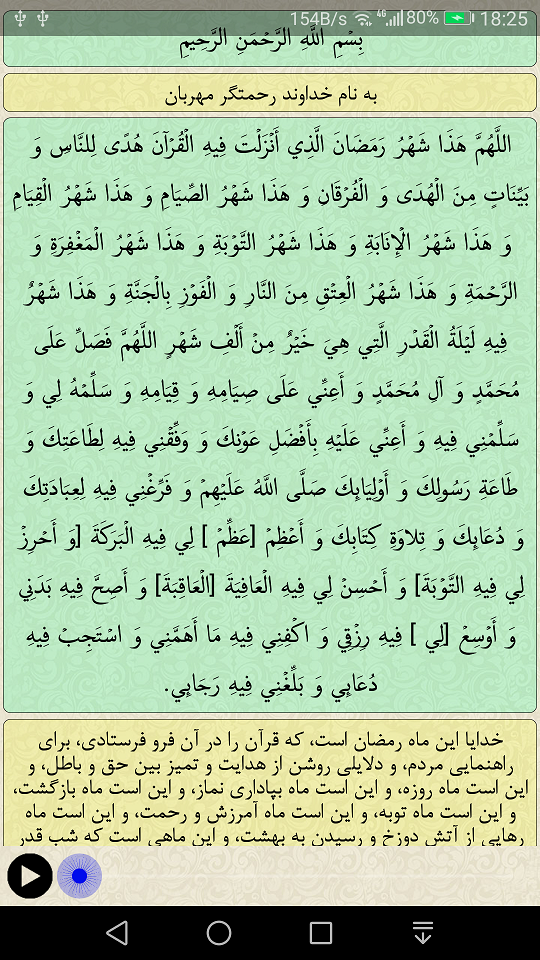 154B/s 4G 80% 18:25
بِسْمِ اللَّهِ الرَّحْمَنِ الرَّحِيمِ
به نام خداوند رحمتگر مهربان
اللَّهُمَّ هَذَا شَهْرُ رَمَضَانَ الَّذِي أَنْزَلْتَ فِيهِ الْقُرْآنَ هُدًى لِلنَّاسِ وَ
بَيِّنَاتٍ مِنَ الْهُدَى وَ الْفُرْقَانِ وَ هَذَا شَهْرُ الصِّيَامِ وَ هَذَا شَهْرُ الْقِيَامِ
وَ هَذَا شَهْرُ الْإِنَابَةِ وَ هَذَا شَهْرُ التَّوْبَةِ وَ هَذَا شَهْرُ الْمَغْفِرَةِ وَ
الرَّحْمَةِ وَ هَذَا شَهْرُ الْعِتْقِ مِنَ النَّارِ وَ الْفَوْزِ بِالْجَنَّةِ وَ هَذَا شَهْرٌ
فِيهِ لَيْلَةُ الْقَدْرِ الَّتِي هِيَ خَيْرٌ مِنْ أَلْفِ شَهْرٍ اللَّهُمَّ فَصَلِّ عَلَى
مُحَمَّدٍ وَ آلِ مُحَمَّدٍ وَ أَعِنِّي عَلَى صِيَامِهِ وَ قِيَامِهِ وَ سَلِّمْهُ لِي وَ
سَلِّمْنِي فِيهِ وَ أَعِنِّي عَلَيْهِ بِأَفْضَلِ عَوْنِكَ وَ وَفِّقْنِي فِيهِ لِطَاعَتِكَ وَ
طَاعَةِ رَسُولِكَ وَ أَوْلِيَائِكَ صَلَّى اللَّهُ عَلَيْهِمْ وَ فَرِّغْنِي فِيهِ لِعِبَادَتِكَ
وَ دُعَائِكَ وَ تِلاوَةِ كِتَابِكَ وَ أَعْظِمْ [عَظِّمْ ] لِي فِيهِ الْبَرَكَةَ [وَ أَحْرِزْ
لِي فِيهِ التَّوْبَةَ] وَ أَحْسِنْ لِي فِيهِ الْعَافِيَةَ [الْعَاقِبَةَ] وَ أَصِحَّ فِيهِ بَدَنِي
وَ أَوْسِعْ [لِي ] فِيهِ رِزْقِي وَ اكْفِنِي فِيهِ مَا أَهَمَّنِي وَ اسْتَجِبْ فِيهِ
دُعَائِي وَ بَلِّغْنِي فِيهِ رَجَائِي.
خدایا این ماه رمضان است، که قرآن را در آن فرو فرستادی، برای
راهنمایی مردم، و دلایلی روشن از هدایت و تمیز بین حق و باطل، و
این است ماه روزه، و این است ماه بپاداری نماز، و این است ماه بازگشت،
و این است ماه توبه، و این است ماه آمرزش و رحمت، و این است ماه
رهایی از آتش دوزخ و رسیدن به بهشت، و این ماهی است که شب قدر